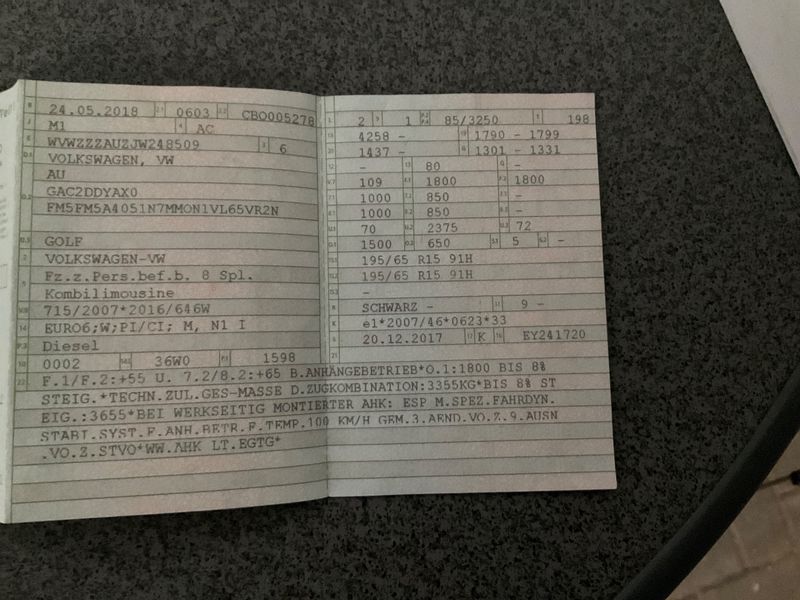 24.05.2018 0603 CBO005278
M1 AC
WVWZZZAUZJW248509 6
VOLKSWAGEN, VW
AU
GAC2DDYAX0
FM5FM5A4051N7MMON1VL65VR2N
GOLF
VOLKSWAGEN-VW
Fz.z.Pers.bef.b. 8 Spl.
Kombilimousine
715/2007*2016/646W
EURO6;W;PI/CI; M, N1 I
Diesel
0002 36W0 1598
2 1 85/3250 198
4258 - 1790 - 1799
1437 - 1301 - 1331
- 80 -
109 1800 1800
1000 850 -
1000 850 -
70 2375 72
1500 650 5 -
195/65 R15 91H
195/65 R15 91H
-
SCHWARZ - 9 -
e1*2007/46*0623*33
20.12.2017 K EY241720
F.1/F.2:+55 U. 7.2/8.2:+65 B.ANHÄNGEBETRIEB*O.1:1800 BIS 8%
STEIG.*TECHN.ZUL.GES-MASSE D.ZUGKOMBINATION:3355KG*BIS 8% ST
EIG.:3655*BEI WERKSEITIG MONTIERTER AHK: ESP M.SPEZ.FAHRDYN.
STABI.SYST.F.ANH.BETR.F.TEMP.100 KM/H GEM.3.AEND.VO.Z.9.AUSN
.VO.Z.STVO*WW.AHK LT.EGTG*